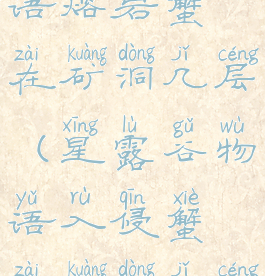 语熔岩蟹
zài kuàng dòng jǐ céng
在矿洞几层
xīng lù gǔ wù
（星露谷物
yǔ rù qīn xiè
语入侵蟹
zài kuàng dòng jǐ céng